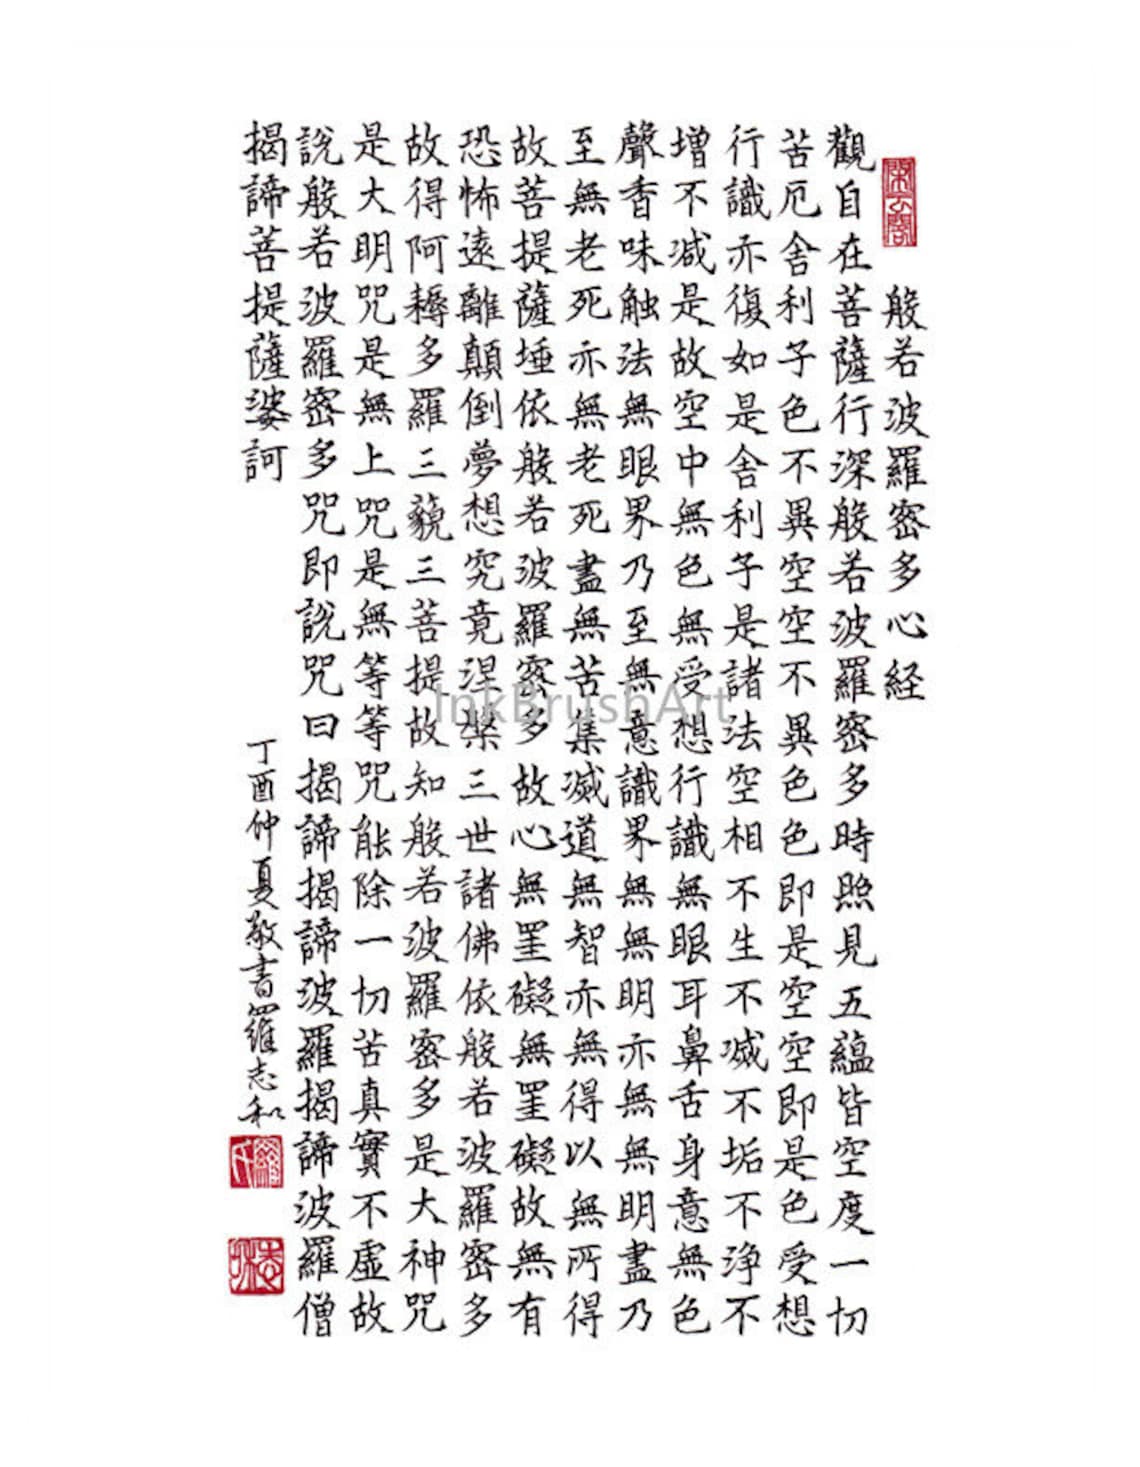 般若波羅密多心経
觀自在菩薩行深般若波羅密多時照見五蘊皆空度一切
苦厄舍利子色不異空空不異色色即是空空即是色受想
行識亦復如是舍利子是諸法空相不生不滅不垢不浄不
增不減是故空中無色無受想行識無眼耳鼻舌身意無色
聲香味触法無眼界乃至無意識界無無明亦無無明盡乃
至無老死亦無老死盡無苦集滅道無智亦無得以無所得
故菩提薩埵依般若波羅密多故心無罣礙無罣礙故無有
恐怖遠離顛倒夢想究竟涅槃三世諸佛依般若波羅密多
故得阿耨多羅三藐三菩提故知般若波羅密多是大神咒
是大明咒是無上咒是無等等咒能除一切苦真實不虛故
說般若波羅密多咒即說咒曰揭諦揭諦波羅揭諦波羅僧
揭諦菩提薩婆訶
丁酉仲夏敬書羅志和
羅氏
志和
InkBrushArt